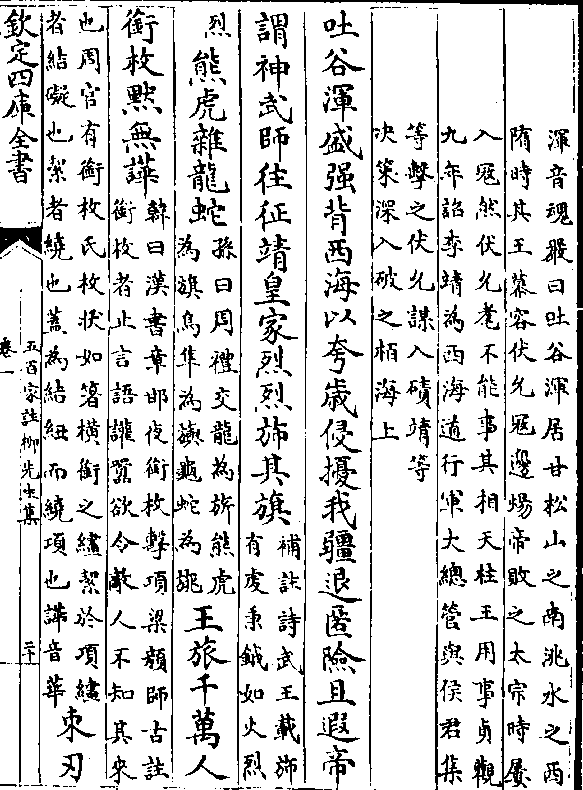 渾音魂嚴曰吐谷渾居甘松山之南洮水之西
隋時其王慕容伏允寇邊煬帝敗之太宗時屢
入寇然伏允耄不能事其相天柱王用事貞觀
九年詔李靖為西海道行軍大總管與侯君集
等擊之伏允謀入磧靖等
决策深入破之栢海上
吐谷渾盛强背西海以夸歲侵擾我疆退匿險且遐帝
謂神武師往征靖皇家烈烈斾其旗
補註詩武王載斾
有虔秉鉞如火烈
烈
熊虎雜龍蛇
孫曰周禮交龍為旂熊虎
為旗鳥隼為旟龜蛇為旐
王旅千萬人
銜枚黙無譁
韓曰漢書章邯夜銜枚擊項梁顔師古註
銜枚者止言語讙囂欲令敵人不知其來
也周官有銜枚氏枚狀如箸横銜之繣絜於項繣
者結礙也絜者繞也蓋為結紐而繞項也譁音華
束刃
欽定四庫全書
卷一
五百家註柳先生集
二十